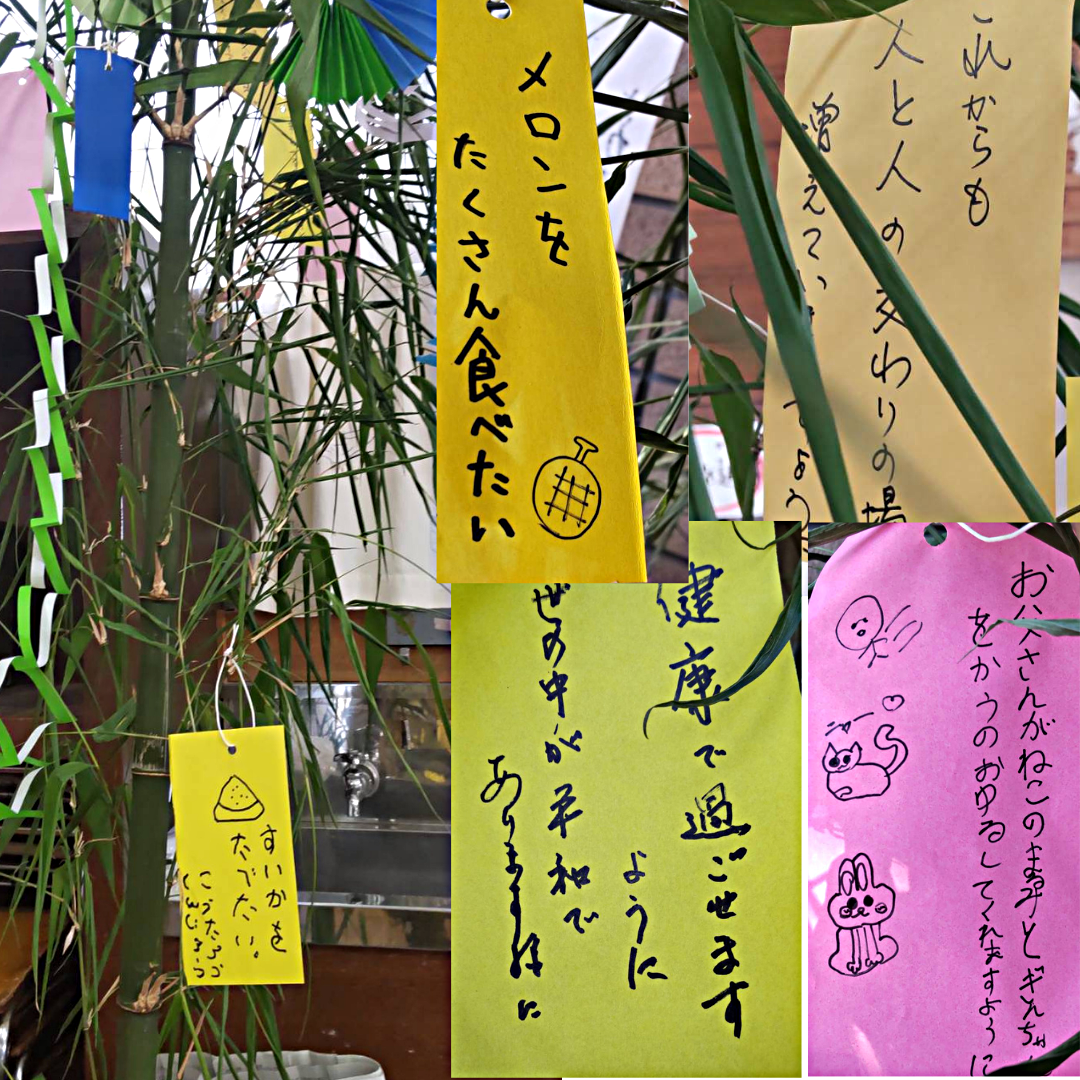 メロンを
たくさん食べたい
これからも
人と人の交わりの場
増えてい
しょう
すいかを
たべたい。
健康で過ごせます
ように
世の中が平和で
ありますす様に
お父さんがねこのまる子とギンちゃ
をかうのおゆるしてくれますように
ニャー